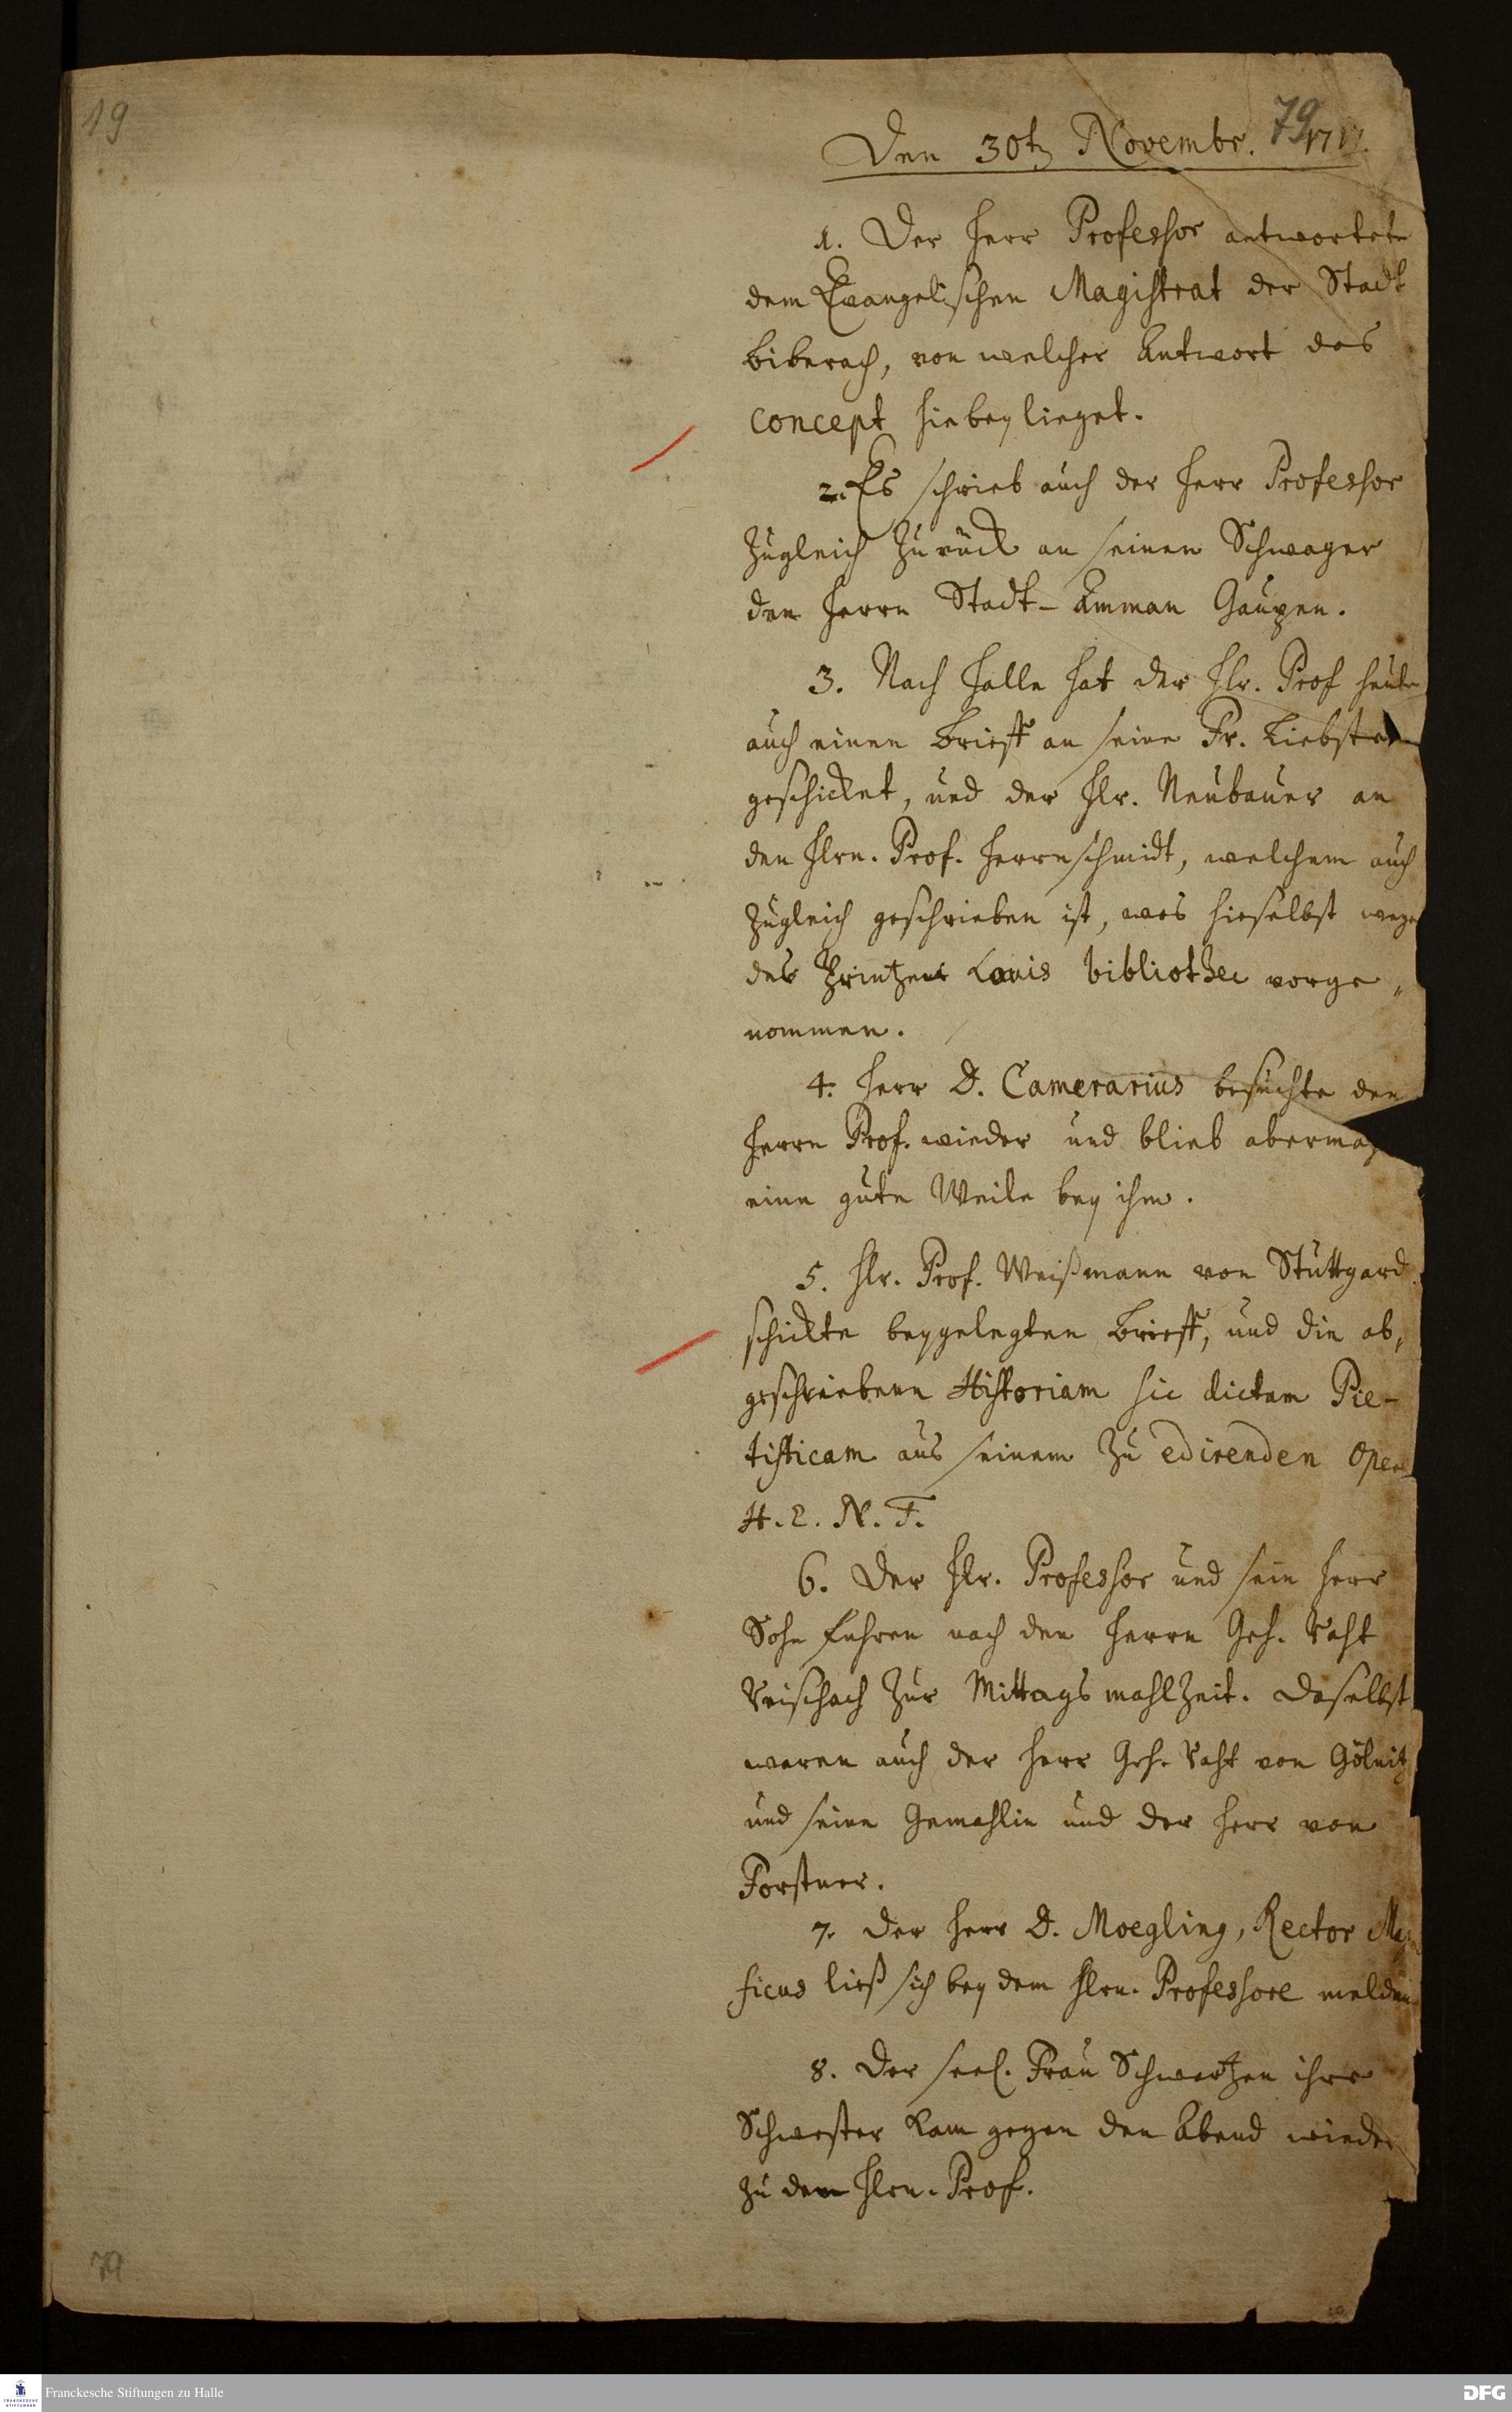 19
79
Den 30tn Novembr. 1717.
1. Der Herr Professor antwortete
dem Evangelischen Magistrat der Stadt
Biberach, von welcher Antwort das
Concept hiebey lieget.
2. Es schrieb auch der Herr Professor
zugleich zurück an seinen Schwager
den Herrn Stadt-Amman Gaupen.
3. Nach Halle hat der Hr. Prof heute
auch einen Brieff an seine Fr. Liebste
geschicket, und der Hr. Neubauer an
den Hrn. Prof. Herrnschmidt, welchem auch
zugleich geschrieben ist, was hieselbst wege
des Printzen Louis bibliothec vorge„
nommen.
4. Herr D. Camerarius besuchte den
Herrn Prof. wieder und blieb aberma
eine gute Weile bey ihm.
5. Hr. Prof. Weißmann von Stuttgard
schickte beygelegten Brieff, und die ab„
geschriebene Historiam sic dictam Pie-
tisticam aus seinem zu edirenden Oper
H. E. N. T.
6. Der Hr. Professor und sein Herr
Sohn fuhren nach den Herrn Geh. Raht
Reischach zur Mittags mahlzeit. Daselbst
waren auch der Herr Geh. Raht von Gölnitz
und seine Gemahlin und der Herr von
Forstner.
7. Der Herr D. Moegling, Rector Ma
ficus ließ sich bey dem Hrn. Professore melden
8. Der seel. Frau Schwartzen ihre
Schwester kam gegen den Abend wieder
zu dem Hrn. Prof.
79
Franckesche Stiftungen zu Halle
DFG